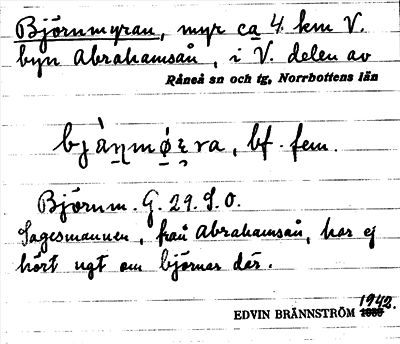 Björnmyran, myr ca 4 km V.
byn Abrahamsån, i V. delen av
Råneå sn och tg, Norrbottens län
bjὰn̯mǿ̨ɛ̯ra, bf. fem.
Björnm. G. 29. S. O.
Sagesmannen, från Abrahamsån, har ej
hört ngt om björnar där.
1942.
EDVIN BRÄNNSTRÖM